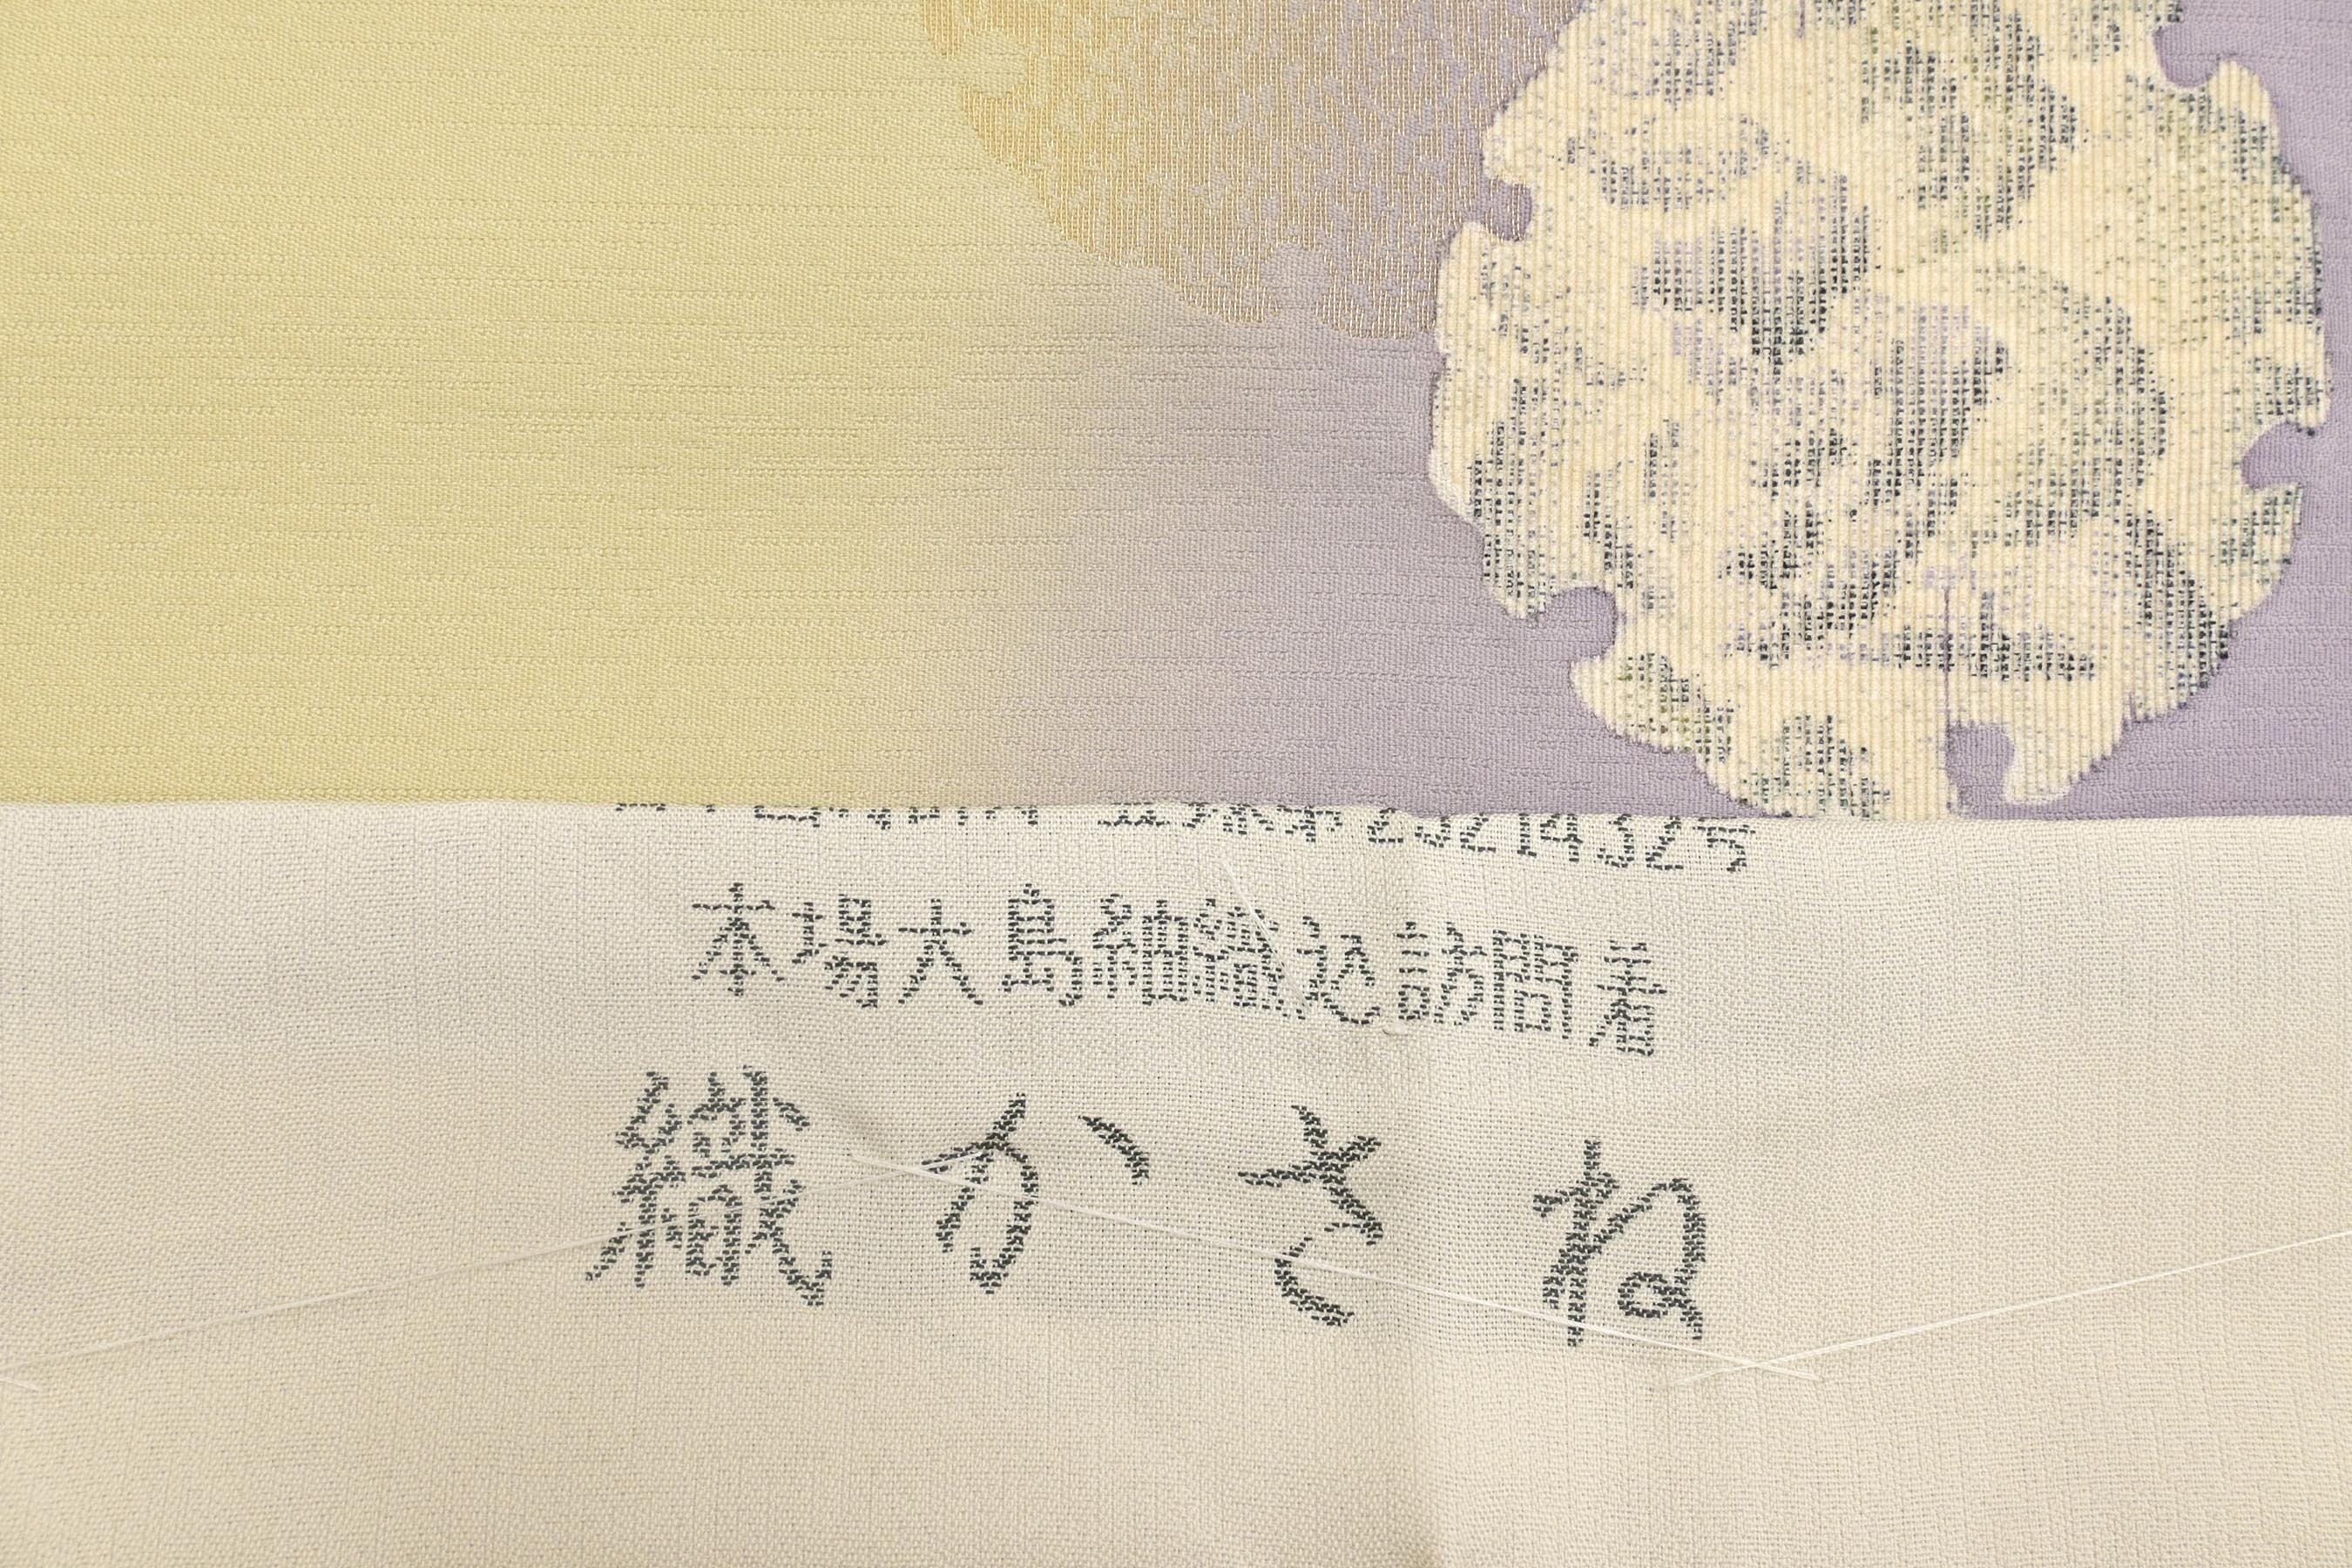 第2021432号
本場大島紬織込訪問着
織かさね